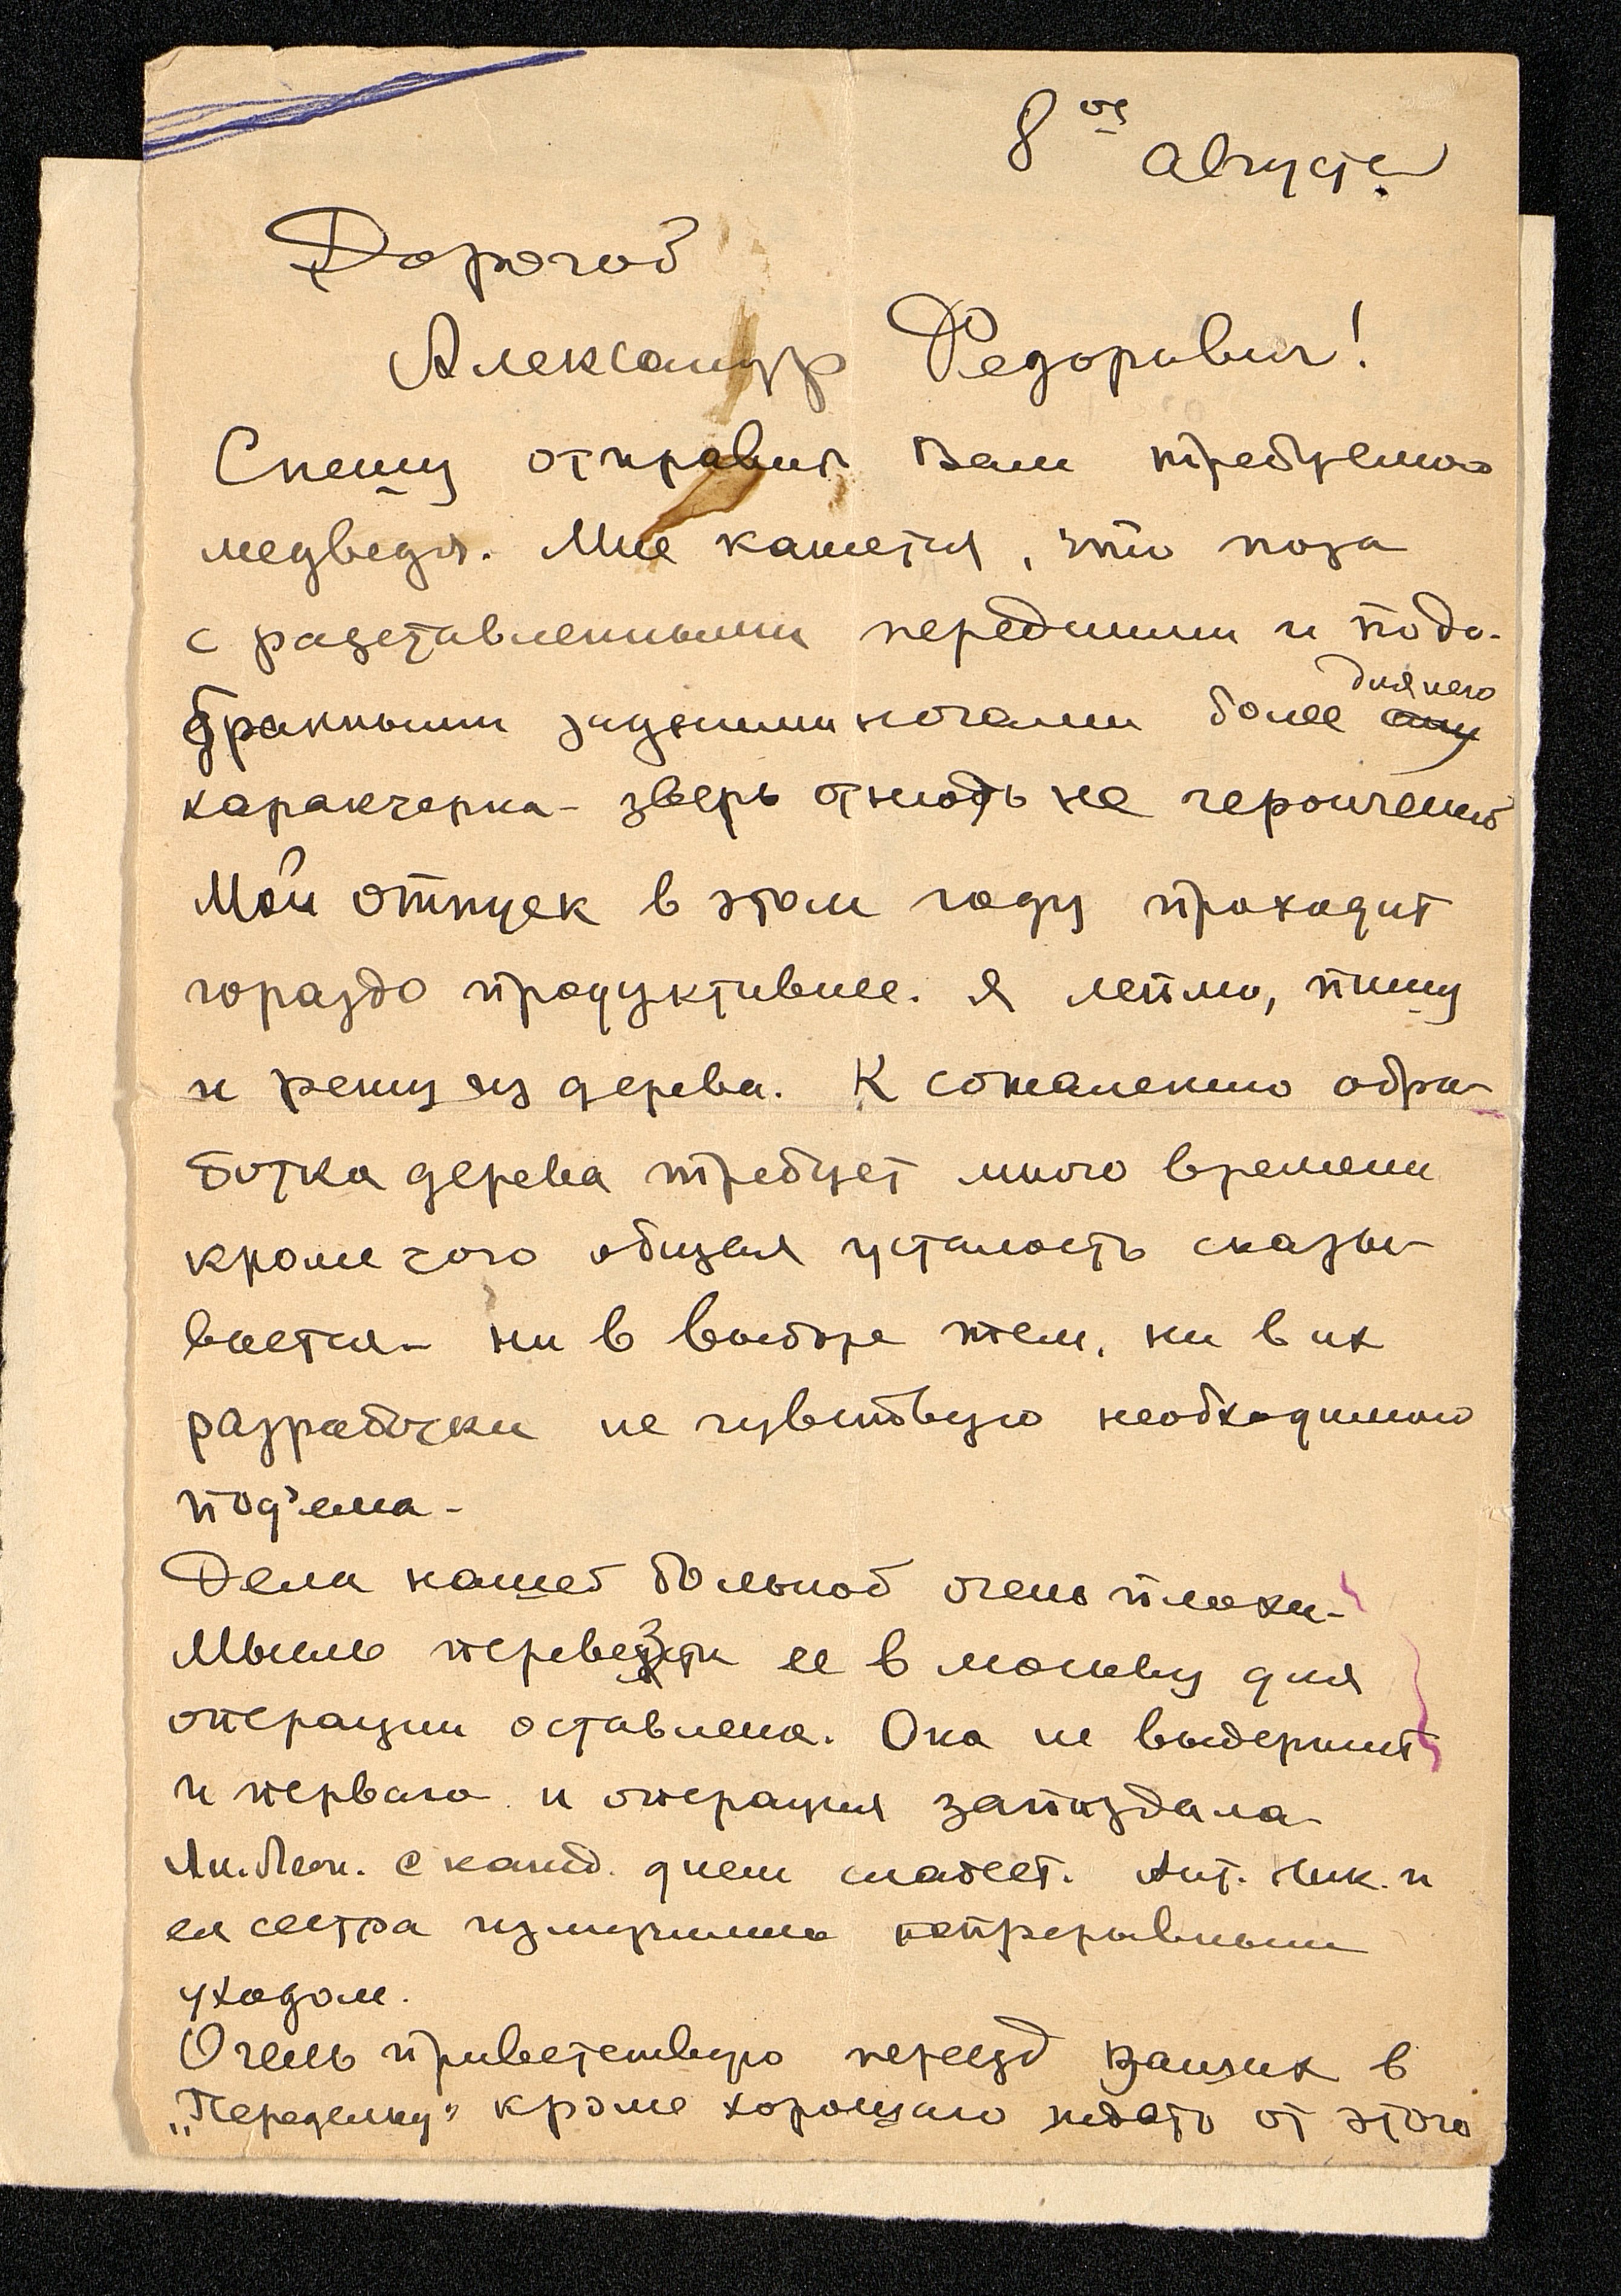 8ое
августа
Дорогой
Александр Федорович!
Спешу отправить Вам требуемого
медведя. Мне кажется, что поза
с разставленными передними и подо-
бранными задними ногами более для него
характерна – зверь отнюдь не героический
Мой отпуск в этом году проходит
гораздо продуктивнее. Я леплю, пишу
и режу из дерева. К сожалению обра-
ботка дерева требует много времени
кроме того общая усталость сказы-
вается – ни в выборе тем, ни в их
разработки не чувствую необходимого
под'ема –
Дела нашей больной очень плохи –
Мысль перевезти ее в москву для
операции оставлена. Она не выдержит
и перваго и операция запоздала –
Ан. Леон. с кажд. днем слабеет. Ант. Ник. и
ея сестра измучились непрерывным
уходом.
Очень приветствую переезд Ваших в
„Переделку" кроме хорошаго ждать от этого